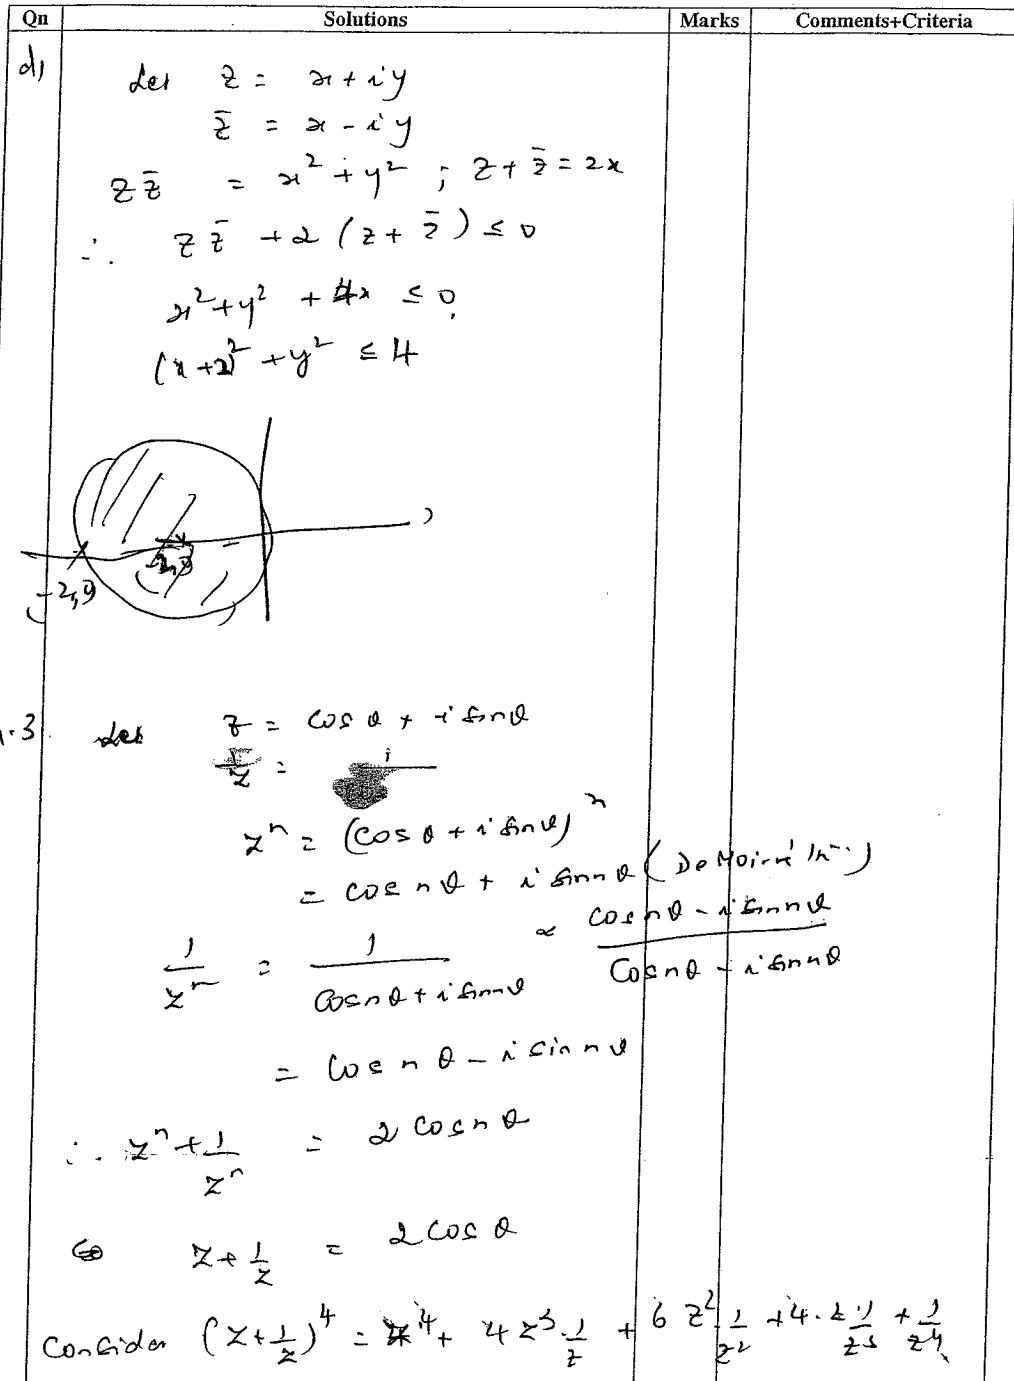 Qn Solutions Marks Comments+Criteria
d) Let z = x + iy
z̄ = x - iy
z z̄ = x² + y² ; z + z̄ = 2x
∴ z z̄ + 2 (z + z̄) ≤ 0
x² + y² + 4x ≤ 0
(x + 2)² + y² ≤ 4
-2,
.3 Let z = cos θ + i sin θ
1/z =
zⁿ = (cos θ + i sin θ)ⁿ
= cos nθ + i sin nθ (De
1/zⁿ = 1/(cos nθ + i sin nθ) × (cos nθ - i sin nθ)/(cos nθ - i sin nθ)
= cos nθ - i sin nθ
∴ zⁿ + 1/zⁿ = 2 cos nθ
z + 1/z = 2 cos θ
Consider (z + 1/z)⁴ = z⁴ + 4 z³ · 1/z + 6 z² · 1/z² + 4 · z · 1/z³ + 1/z⁴